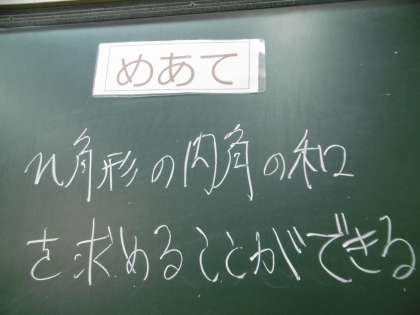 めあて
n角形の内角の和
を求めることができる